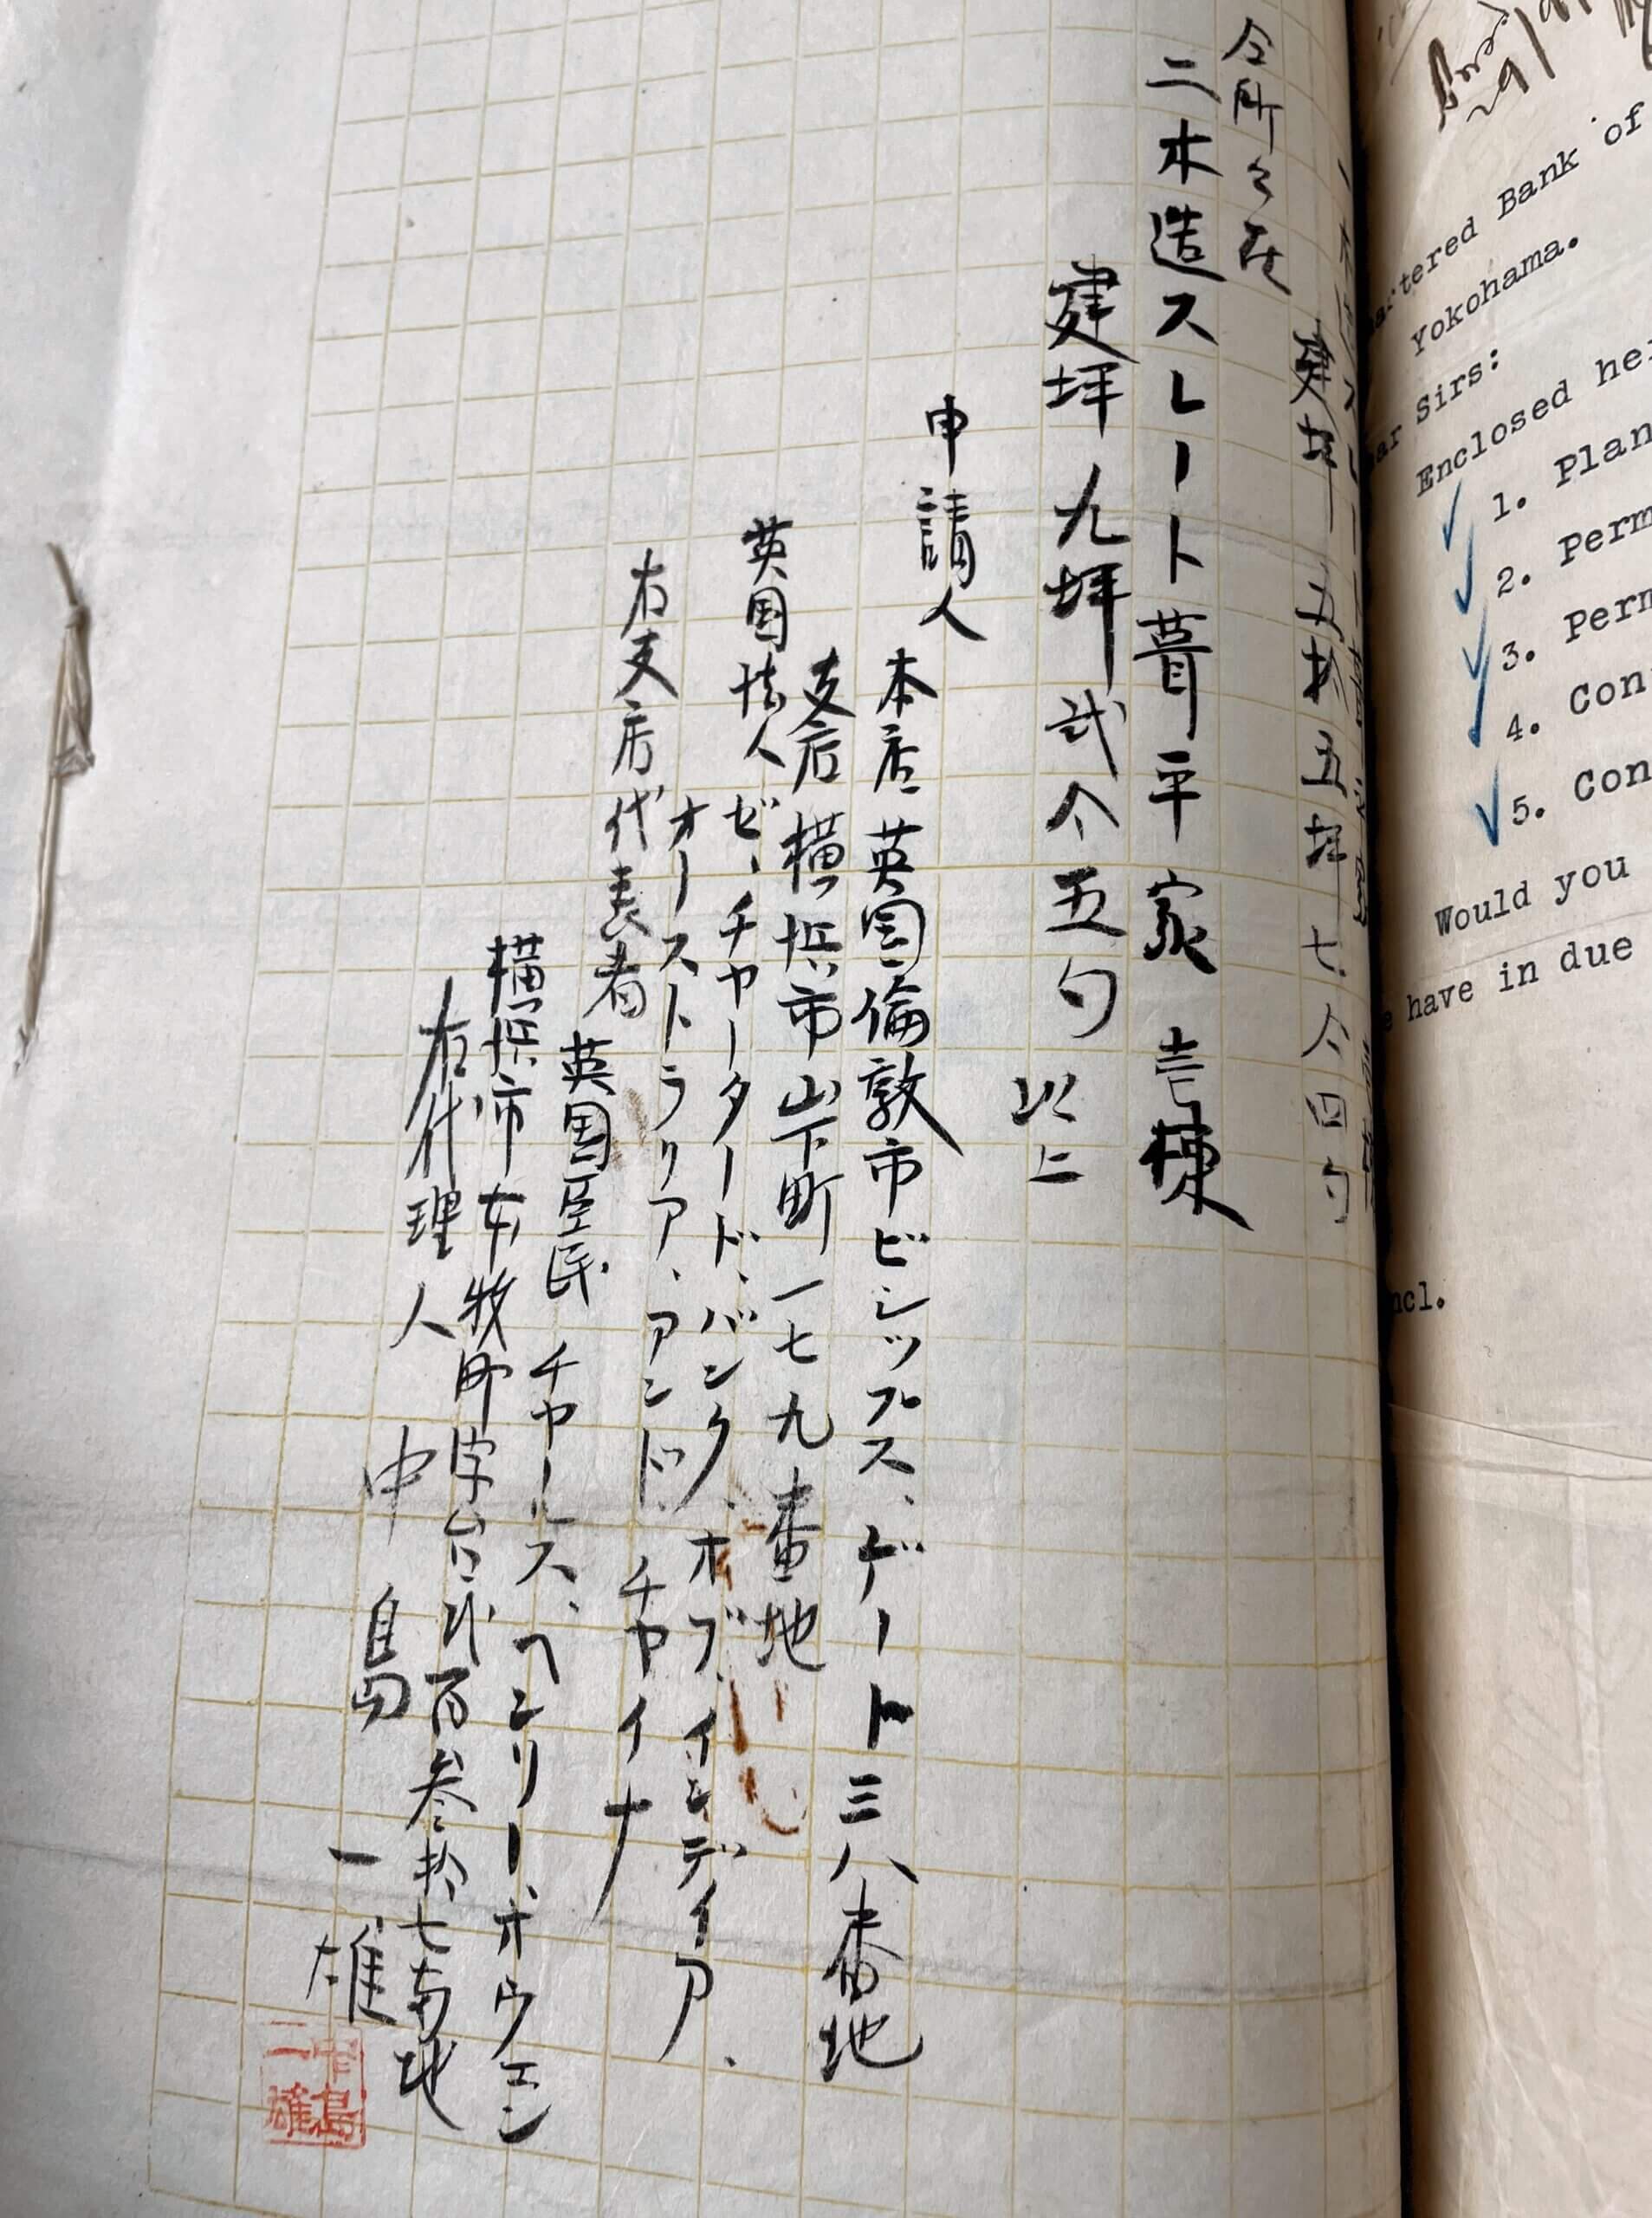 建坪 五拾五坪七合四勺
仝所々在
二木造スレート葺平家 壱棟
建坪 九坪弐合五勺 以上
申請人
本店 英国倫敦市ビショップス、ゲート三八番地
支店 横浜市山下町一七九番地
英国法人 ゼ、チヤータード、バンク、オブ、インデイア、
オーストラリア、アンド、チヤイナ
右支店代表者
英国臣民 チヤールス、ヘンリー、オウエン
横浜市本牧町字台弐百参拾七番地
右代理人 中島一雄
中島
一雄
artered Bank of
Yokohama.
ar Sirs:
Enclosed her
1. Plan
2. Perm
3. Perm
4. Con
5. Con
Would you
e have in due
ncl.